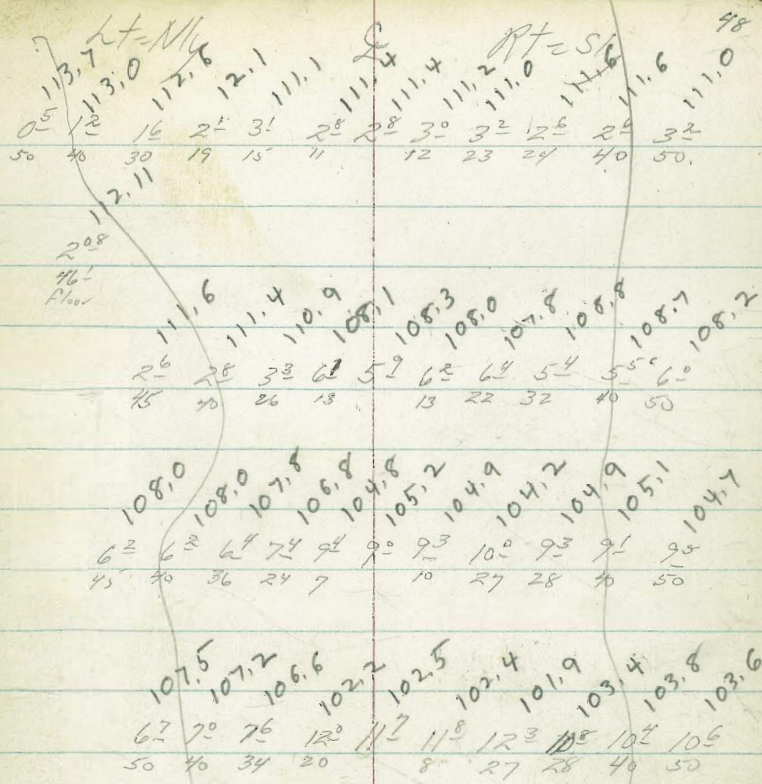 48
Lt = Nly ℄ Rt = Sly
113,7 113,0 112,6 12,1 111,1 111,4 111,4 111,2 111,0 111,6 111,6 111,0
0 5 1 2 1 6 2 1 3 1 2 8 2 8 3 0 3 2 2 6 2 6 3 2
50 40 30 19 15 11 12 23 24 40 50
112,11
2 08
46
Floor
111,6 111,4 110,9 108,1 108,3 108,0 107,8 108,8 108,7 108,2
2 6 2 8 3 3 6 1 5 9 6 2 6 4 5 4 5 5 6 0
45 40 26 13 13 22 32 40 50
108,0 108,0 107,8 106,8 104,8 105,2 104,9 104,2 104,9 105,1 104,7
6 2 6 2 6 4 7 4 9 4 9 0 9 3 10 0 9 3 9 1 9 5
45 40 36 24 7 10 27 28 40 50
107,5 107,2 106,6 102,2 102,5 102,4 101,9 103,4 103,8 103,6
6 7 7 0 7 6 12 0 11 7 11 8 12 3 10 8 10 4 10 6
50 40 34 20 8 27 28 40 50